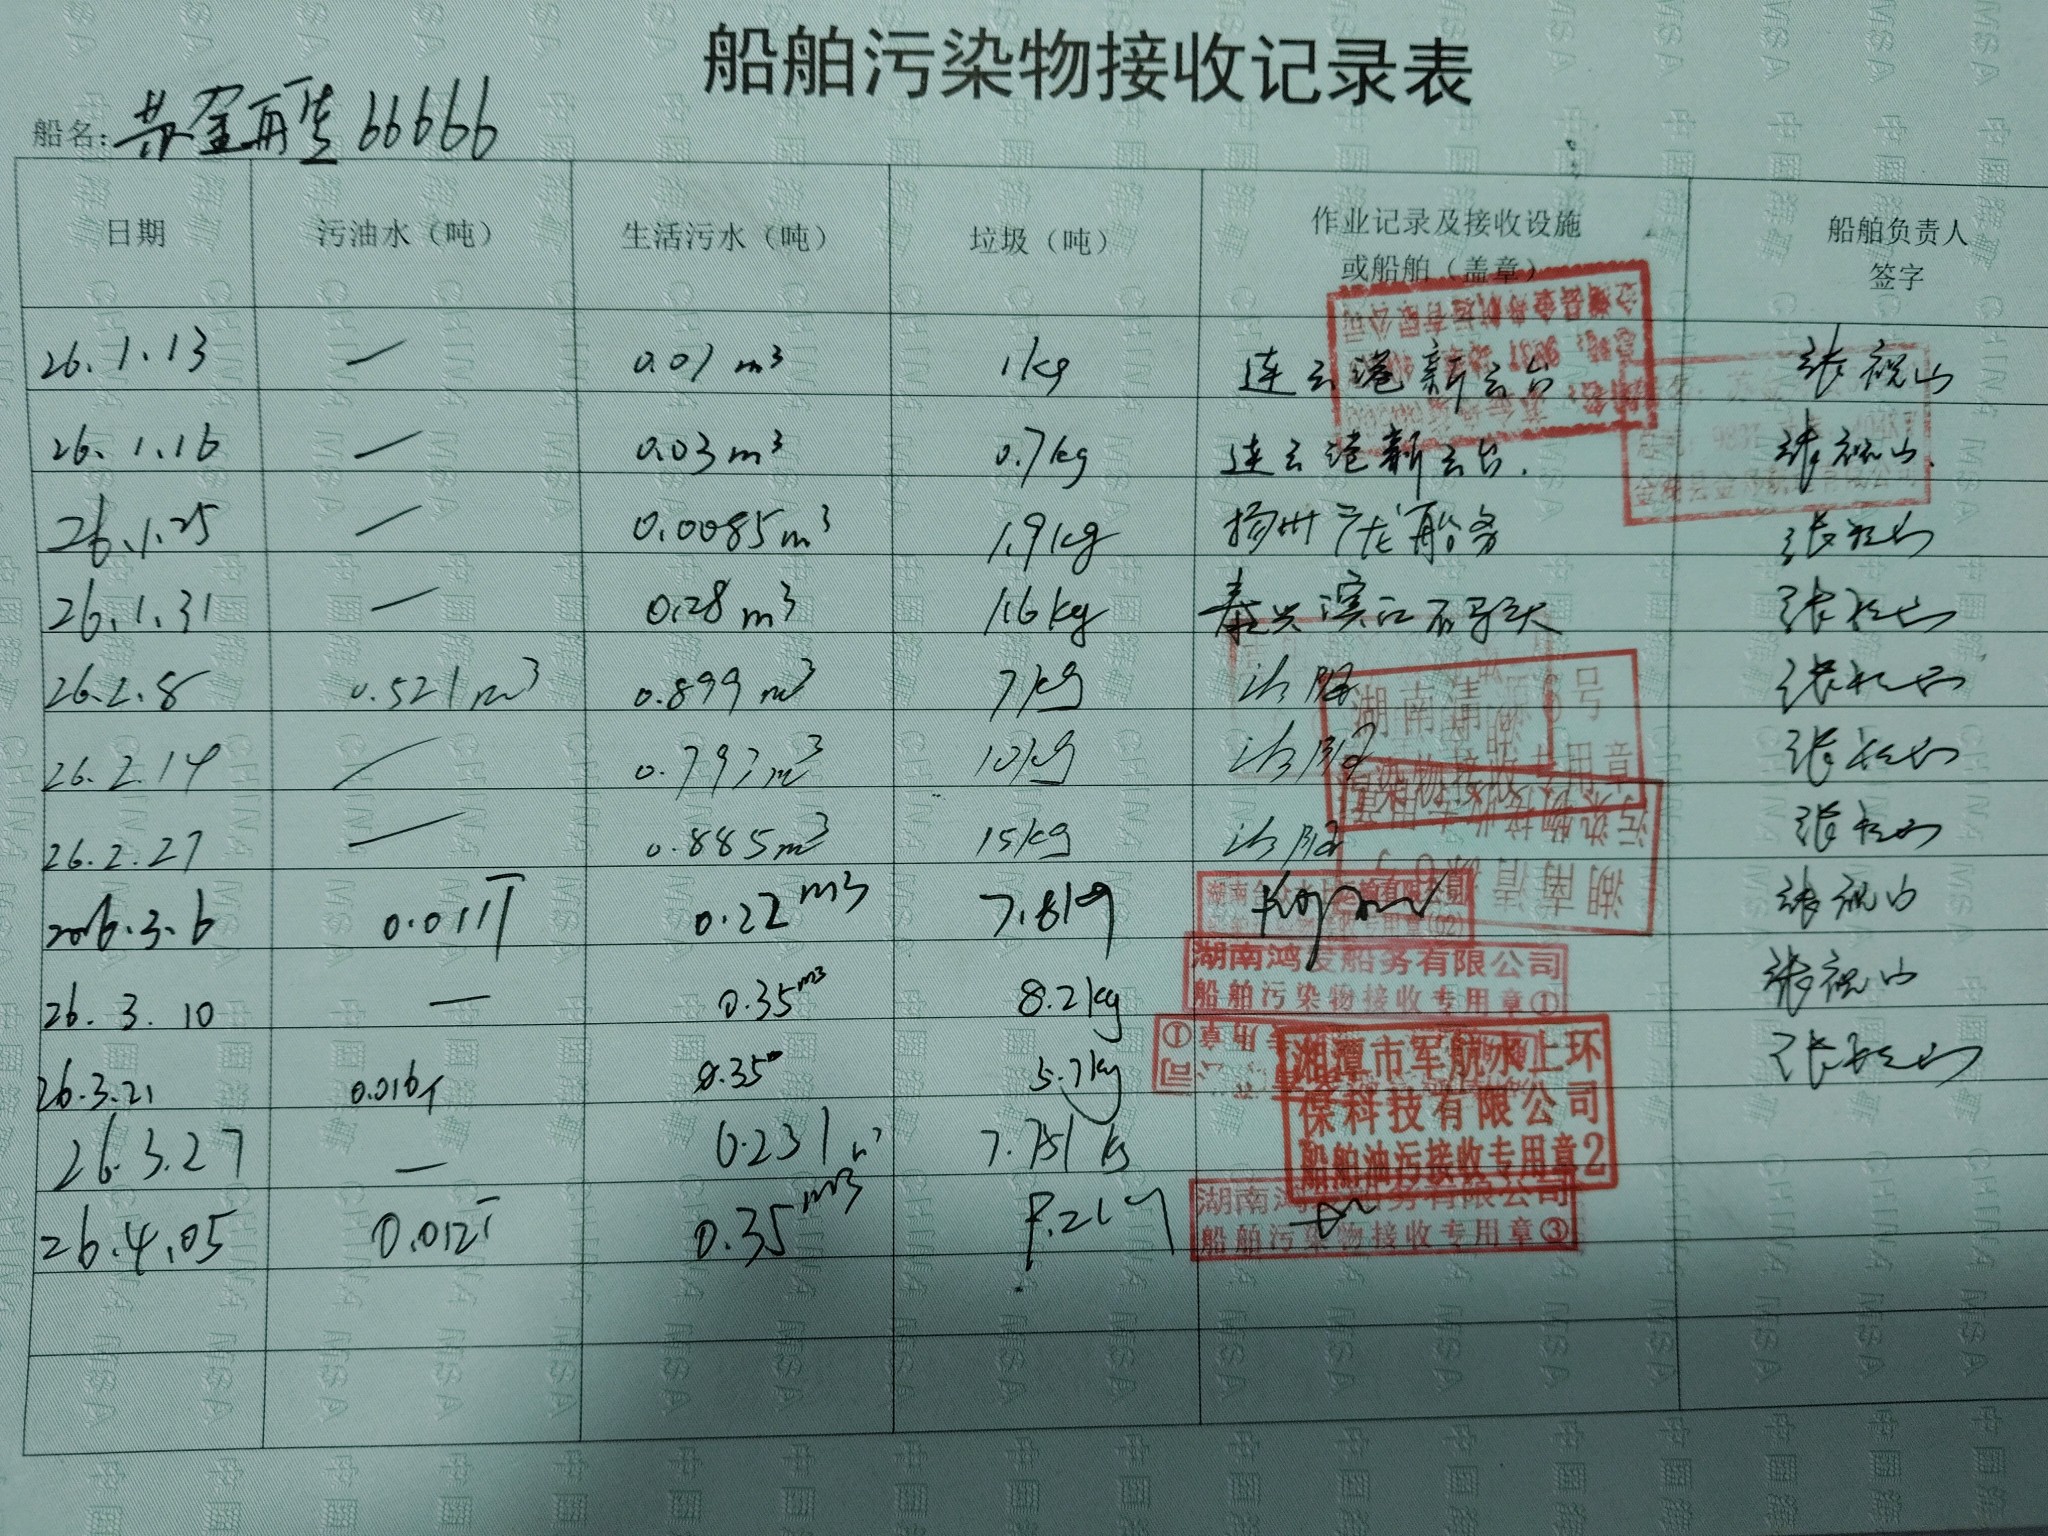 船舶污染物接收记录表
船名: 苏金再生66666
日期 污油水（吨） 生活污水（吨） 垃圾（吨） 作业记录及接收设施或船舶（盖章） 船舶负责人签字
26.1.13 — 0.01 m³ 1kg 连云港新云台 张祝山
26.1.16 — 0.03 m³ 0.7kg 连云港新云台. 张祝山.
26.1.25 — 0.0085m³ 1.9kg 扬州广龙船务 张祝山
26.1.31 — 0.28 m³ 1.6kg 泰兴滨江码头 张祝山
26.2.8 0.521m³ 0.899m³ 7kg 张祝山
26.2.14 — 0.797m³ 10kg 张祝山
湖南清源6号
污染物接收专用章
26.2.27 — 0.885m³ 15kg 张祝山
污染物接收专用章
湖南清
2026.3.6 0.011T 0.22m3 7.8kg 张祝山
湖南鸿发船务有限公司
船舶污染物接收专用章①
26.3.10 — 0.35m3 8.2kg 张祝山
26.3.21 0.016T 0.35 5.7kg 张祝山
湘潭市军航水上环
保科技有限公司
船舶油污接收专用章2
26.3.27 — 0.231 7.751kg
湖南鸿 船务有限公司
船舶污染物接收专用章③
26.4.05 0.012T 0.35m3
中国海事
CHINA MSA